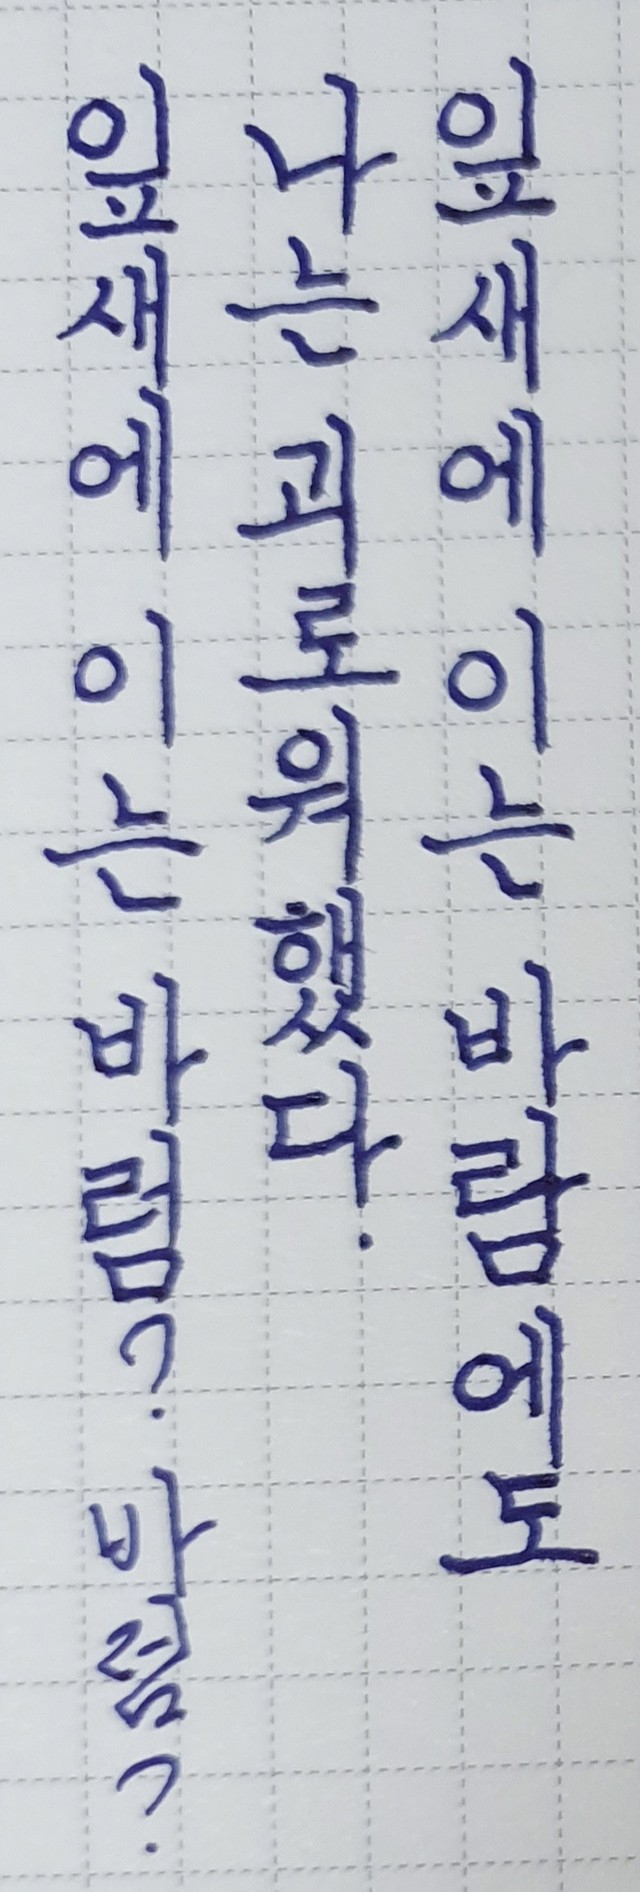 잎새에 이는 바람에도
나는 괴로워했다.
잎새에 이는 바럼? 바럼?